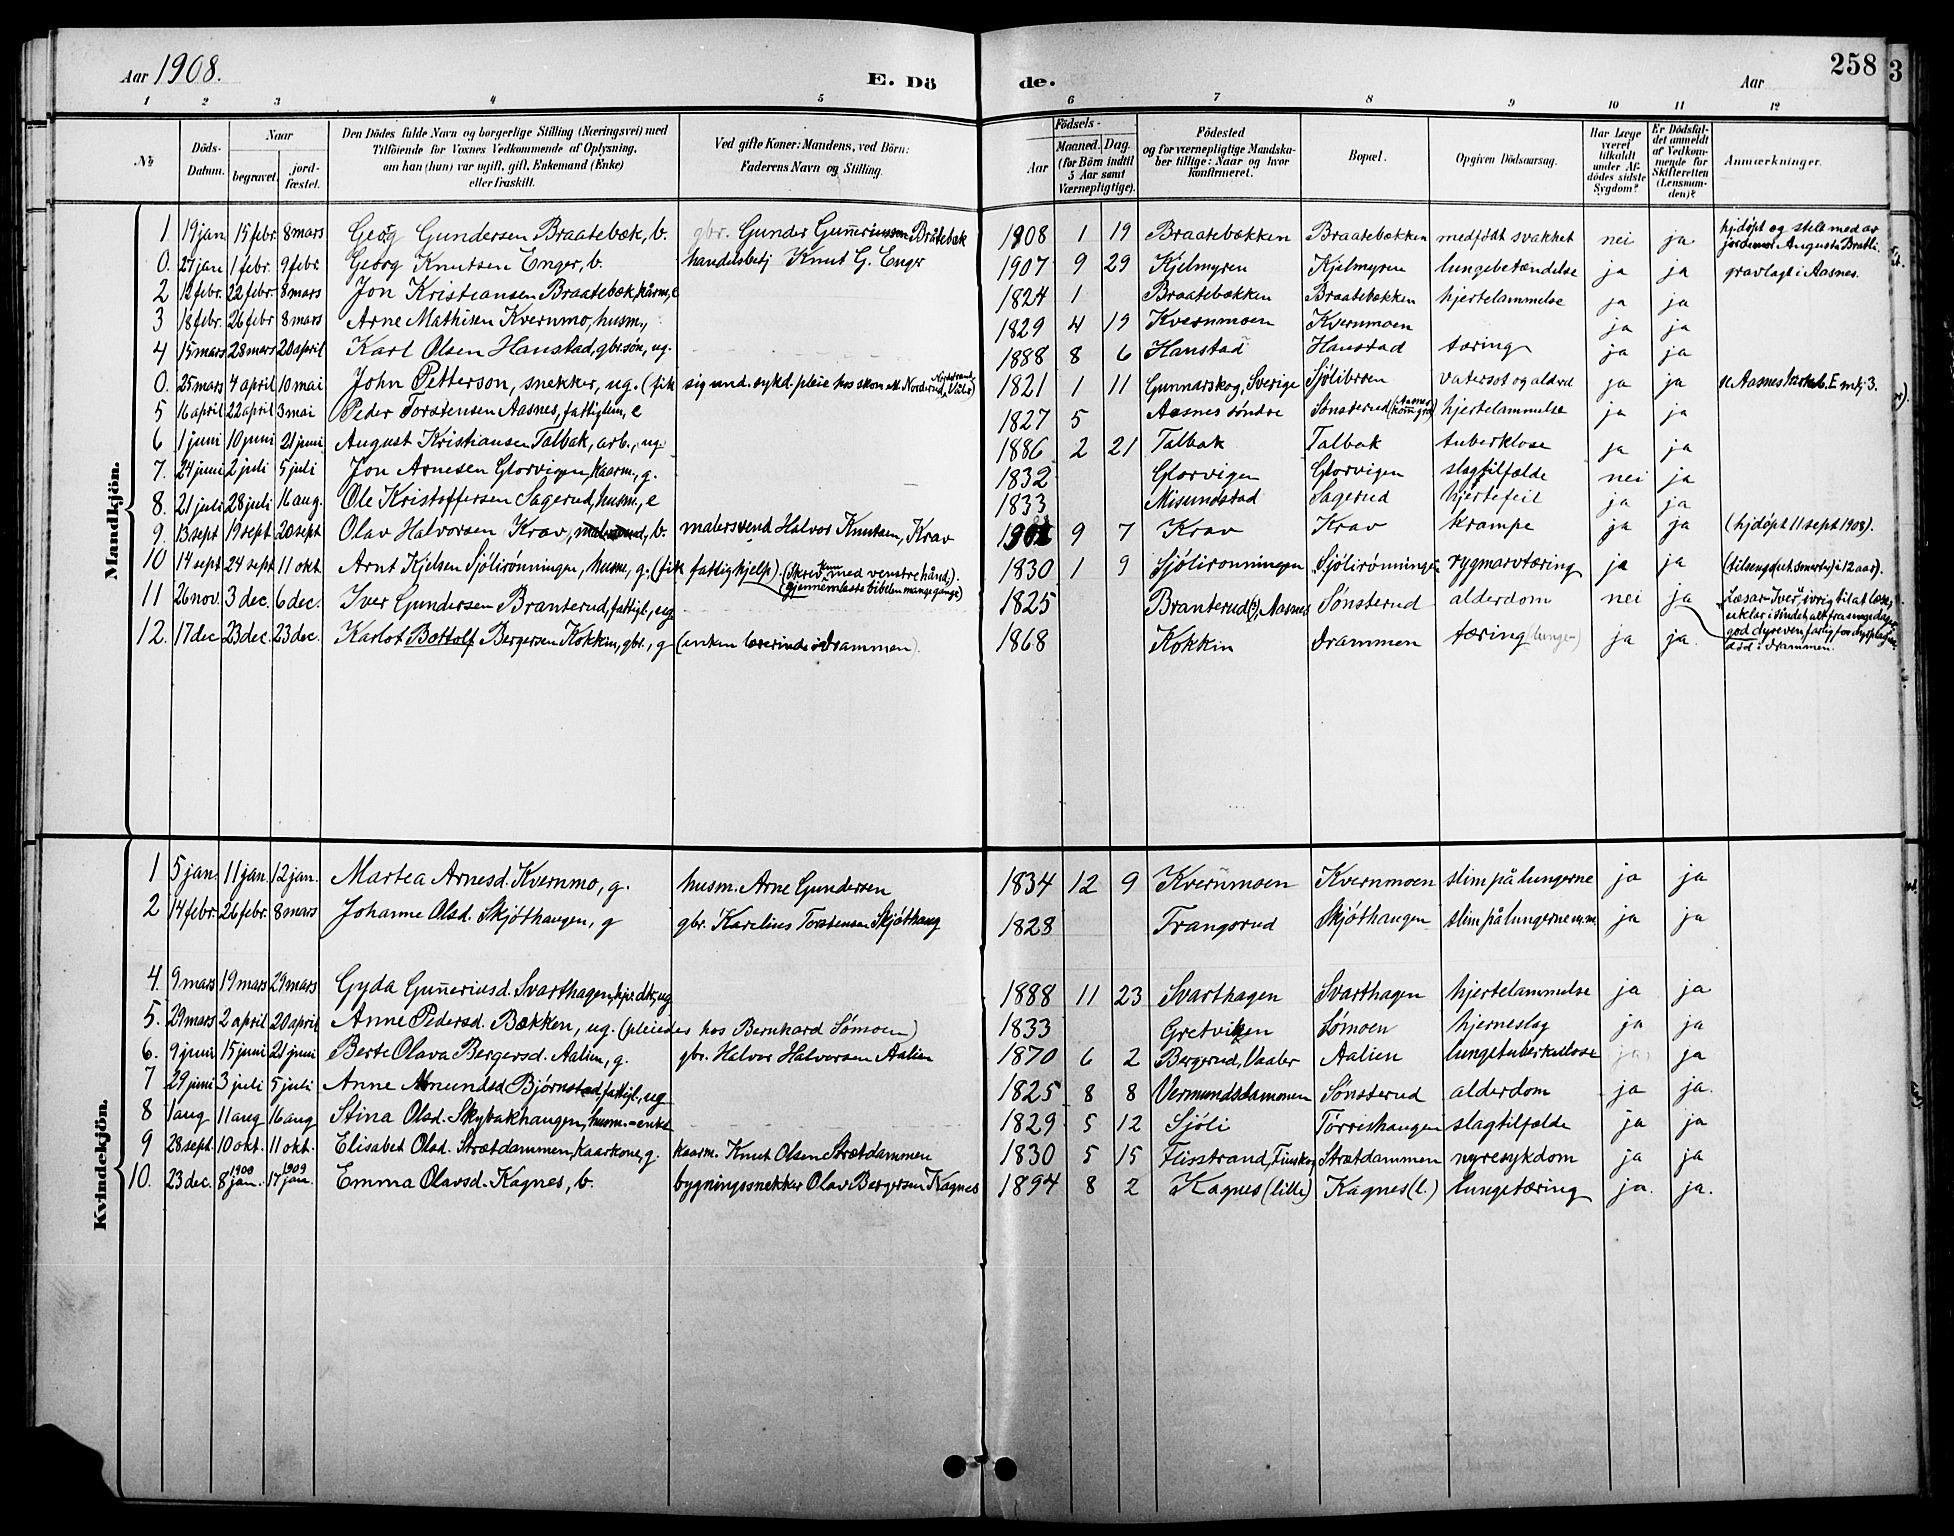 Aar 1908. E. Dö de. Aar 258 3
1 2 3 4 5 6 7 8 9 10 11 12
№ Döds-Datum. Naar begravet. jordfæstet. Den Dödes fulde Navn og borgerlige Stilling (Næringsvei) med Tilföiende for Voxnes Vedkommende af Oplysning, om han (hun) var ugift, gift, Enkemand (Enke) eller fraskilt. Ved gifte Koner: Mandens, ved Börn: Faderens Navn og Stilling. Födsels- Aar Maaned. Dag. (for Börn indtil 5 Aar samt Værnepligtige). Födested og for værnepligtige Mandskaber tillige: Naar og hvor konfirmeret. Bopæl. Opgiven Dödsaarsag. Har Læge været tilkaldt under Afdödes sidste Sygdom? Er Dödsfaldet anmeldt af Vedkommende for Skifteretten (Lensmanden)? Anmærkninger.
Mandkjön.
1 19 jan 15 febr. 8 mars Georg Gundersen Braatebæk, b. gbr. Gunder Gunneriussen Bråtebæk 1908 1 19 Braatebækken Braatebækken medfödt svakhet nei ja hjdøpt og stelt med av jordmor Augusta Bratli.
0. 27 jan 1 febr. 9 febr. Georg Knutsen Enger, b. handelsbetj Knut G. Enger 1907 9 29 Kjelmyren Kjelmyren lungebetændelse ja ja gravlagt i Aasnes.
2 12 febr. 22 febr. 8 mars Jon Kristiansen Braatebæk, kårm, e 1824 1 Braatebækken Braatebækken hjertelammelse ja ja
3 18 febr. 26 febr 8 mars Arne Mathisen Kvernmo, husm., 1829 4 19 Kvernmoen Kvernmoen ja ja
4 15 mars 28 mars 20 april Karl Olsen Hanstad, gbr.søn, ug. 1888 8 6 Hanstad Hanstad tæring ja ja
0. 25 mars 4 april 10 mai John Petterson, snekker, ug. (fik sig und. sykd. pleie hos skom. M. Norderud, Våler) 1821 1 11 Gunnarskog, Sverige Sjölibroen vatersot og alderd ja ja se Aasnes kirkeb. E mkj 3.
5 16 april 22 april 3 mai Peder Torstensen Aasnes, fattiglem, e 1827 5 Aasnes söndre Sönsterud (Aasnes komgrd) hjertelammelse ja ja
6 1 juni 10 juni 21 juni August Kristiansen Talbak, arb., ug. 1886 2 21 Talbak Talbak tuberklose ja ja
7. 24 juni 2 juli 5 juli Jon Arnesen Glorvigen, kaarm., g. 1832 Glorvigen Glorvigen slagtilfælde nei ja
8. 21 juli 28 juli 16 aug. Ole Kristoffersen Sagerud, husm., e 1833 Misundstad Sagerud hjertefeil ja ja
9. 13 sept 19 sept 20 sept Olav Halvorsen Krav, b. malersvend Halvor Knutsen, Krav 9 7 Krav Krav krampe ja ja (hjdöpt 11 sept 1908).
10 14 sept 24 sept 11 okt. Arnt Kjelsen Sjölirønningen, husm., g. (fik fattighjelp). (Skrev kun med venstre hånd). (gjennemlæste bibelen mange gange) 1830 1 9 Sjölironningen Sjölirønningen rygmarvtæring ja ja (tilsengs (ut. smerte) i 12 aar).
11 26 nov. 3 dec. 6 dec. Iver Gundersen Branterud, fattigl., ug 1825 Branterud (?), Aasnes Sønsterud alderdom nei ja "Læsar-Iver", ivrig til at læse,
12. 17 dec 23 dec. 23 dec. Karlot Bottolf Bergersen Kokkin, gbr., g (enken lærerinde i Drammen). 1868 Kokkin Drammen tæring (lunge-) ja ja. död i Drammen.
Kvindekjön.
1 5 jan. 11 jan. 12 jan. Martea Arnesd. Kvernmo, g. husm. Arne Gundersen 1834 12 9 Kvernmoen Kvernmoen slim på lungerne ja ja
2 14 febr. 26 febr. 8 mars Johanne Olsd. Skjöthaugen, g gbr. Karelius Torstensen Skjöthaug 1828 Trangsrud Skjöthaugen slim på lungerne m.m. ja ja
4. 9 mars 19 mars 29 mars Gyda Gunneriusd. Svarthagen, ug 1888 11 23 Svarthagen Svarthagen hjertelammelse ja ja
5. 29 mars 2 april 20 april Anne Pedersd. Bækken, ug. (pleiedes hos Bernhard Sømoen) 1833 Gretviken Sømoen hjerneslag ja ja
6. 9 juni 15 juni 21 juni Berte Olava Bergersd. Aalien, g. gbr. Halvor Halvorsen Aalien 1870 6 2 Bergerud, Vaaler Aalien lungetuberkullose ja ja
7 29 juni 3 juli 5 juli Anne Amundsd Bjørnstad, fattigl., ug 1825 8 8 Vermundsdammen Sønsterud alderdom ja ja.
8 1 aug 11 aug 16 aug Stina Olsd. Skybakhaugen, husm.-enke 1829 5 12 Sjöli Törrishaugen slagtilfælde ja ja
9 28 sept. 10 okt. 11 okt. Elisabet Olsd. Strætdammen, kaarkone, g. kaarm. Knut Olsen Strætdammen 1830 5 15 Flisstrand, Finskog Strætdammen nyresykdom ja ja
10. 23 dec. 8 jan. 1909 17 jan. 1909 Emma Olavsd. Kagnes, b. bygningssnekker Olav Bergersen Kagnes 1894 8 2 Kagnes (lille) Kagnes (l.) lungetæring ja. ja.